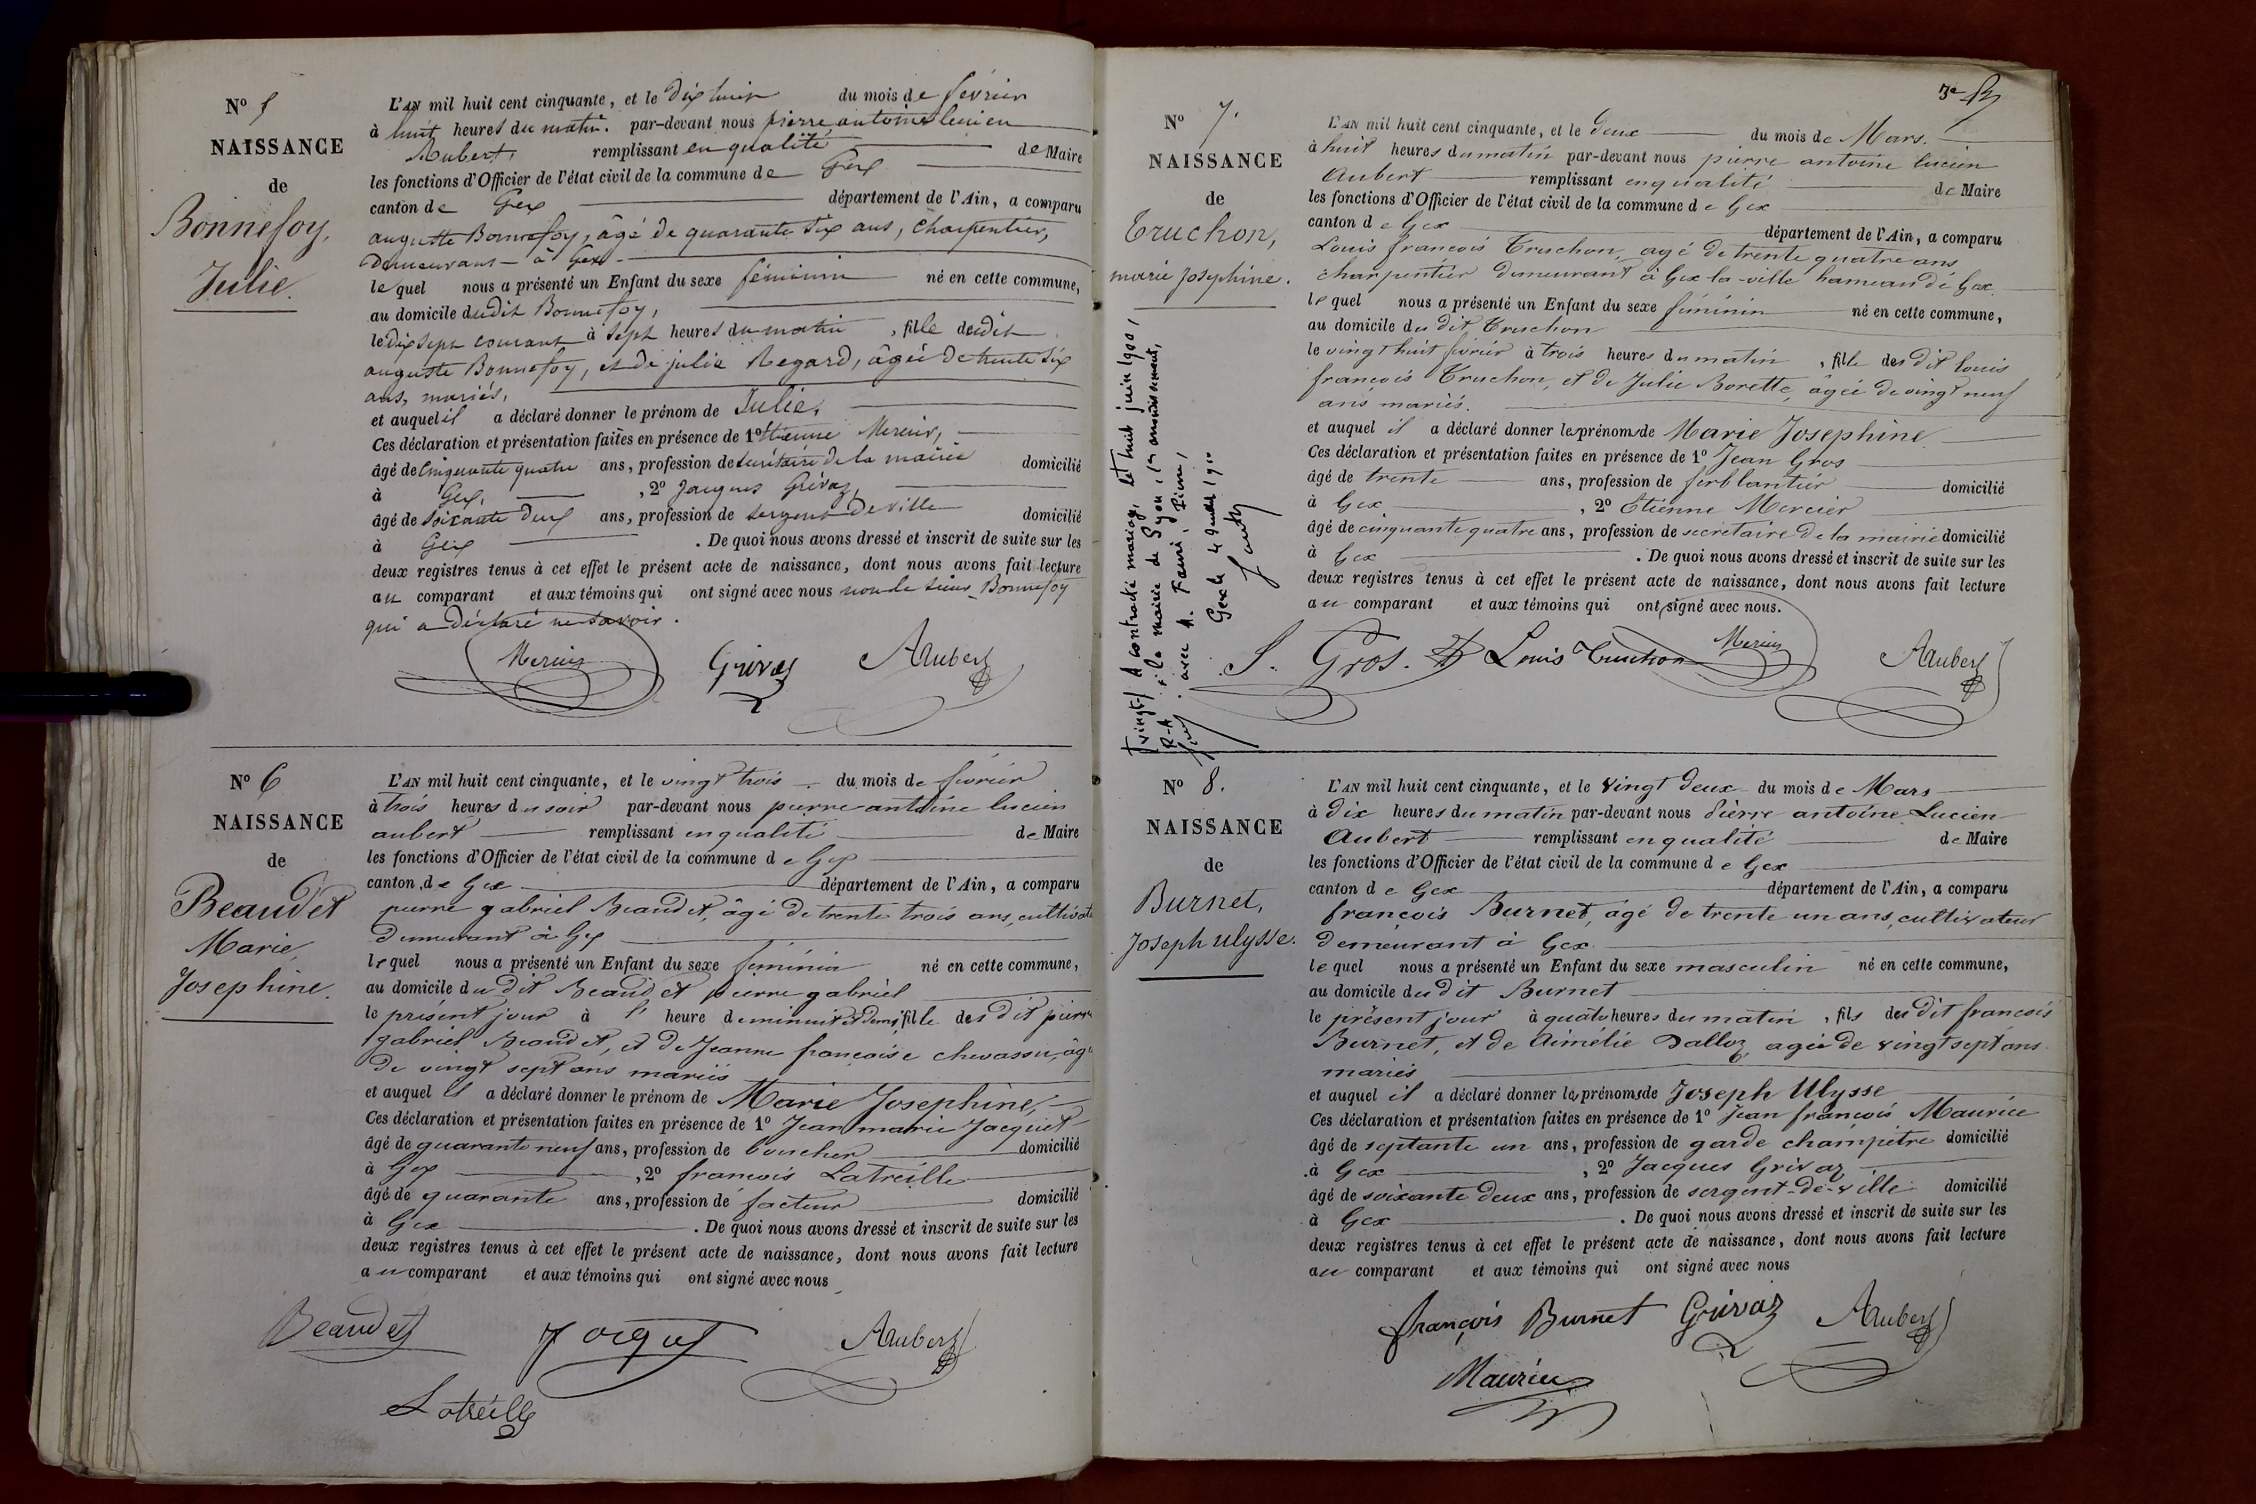 N° 5
NAISSANCE
de
Bonnefoy,
Julie.
L'AN mil huit cent cinquante, et le dix huit du mois de février
à huit heures du matin. par-devant nous pierre antoine lucien
Aubert, remplissant en qualité de Maire
les fonctions d'Officier de l'état civil de la commune de Gex
canton de Gex département de l'Ain, a comparu
auguste Bonnefoy, âgé de quarante six ans, charpentier,
demeurant à Gex
lequel nous a présenté un Enfant du sexe féminin né en cette commune,
au domicile dudit Bonnefoy,
le dix sept courant à sept heures du matin, fille dudit
auguste Bonnefoy, et de julie Regard, âgée de trente six
ans, mariés,
et auquel il a déclaré donner le prénom de Julie,
Ces déclaration et présentation faites en présence de 1° Etienne Mercier,
âgé de cinquante quatre ans, profession de secrétaire de la mairie domicilié
à Gex, , 2° Jacques Grivaz,
âgé de soixante deux ans, profession de sergent de ville domicilié
à Gex . De quoi nous avons dressé et inscrit de suite sur les
deux registres tenus à cet effet le présent acte de naissance, dont nous avons fait lecture
au comparant et aux témoins qui ont signé avec nous non le sieur Bonnefoy
qui a déclaré ne savoir.
Mercier Grivaz Aubert
N° 6
NAISSANCE
de
Beaudet
Marie,
Josephine.
L'AN mil huit cent cinquante, et le vingt trois du mois de février
à trois heures du soir par-devant nous pierre antoine lucien
aubert remplissant en qualité de Maire
les fonctions d'Officier de l'état civil de la commune de Gex
canton de Gex département de l'Ain, a comparu
pierre gabriel Beaudet, âgé de trente trois ans, cultivate
demeurant à Gex
lequel nous a présenté un Enfant du sexe féminin né en cette commune,
au domicile du dit Beaudet pierre gabriel
le présent jour à l' heure de minuit et demi, fille des dit pierre
gabriel Beaudet, et de Jeanne françoise chevassu, âgé
de vingt sept ans mariés
et auquel il a déclaré donner le prénom de Marie Josephine,
Ces déclaration et présentation faites en présence de 1° Jean marie Jacquet
âgé de quarante neuf ans, profession de boucher domicilié
à Gex , 2° francois Latreille
âgé de quarante ans, profession de facteur domicilié
à Gex . De quoi nous avons dressé et inscrit de suite sur les
deux registres tenus à cet effet le présent acte de naissance, dont nous avons fait lecture
au comparant et aux témoins qui ont signé avec nous
Beaudet Jacquet Aubert
Latreille
3e
N° 7.
NAISSANCE
de
Truchon,
marie Josephine.
A contracté mariage, le vingt huit juin 1900,
à la mairie de Lyon, 1er arrondissement,
avec M. Fauré, Pierre,
Gex le 4 Juillet 1900
L'AN mil huit cent cinquante, et le deux du mois de Mars.
à huit heures du matin par-devant nous pierre antoine lucien
Aubert remplissant en qualité de Maire
les fonctions d'Officier de l'état civil de la commune de Gex
canton de Gex département de l'Ain, a comparu
Louis francois Truchon, agé de trente quatre ans
charpentier demeurant à Gex-la-ville hameau dé Gex
lequel nous a présenté un Enfant du sexe féminin né en cette commune,
au domicile du dit Truchon
le vingt huit février à trois heures du matin, fille des dit louis
françois Truchon, et de Julie Borette, âgée de vingt neuf
ans mariés.
et auquel il a déclaré donner les prénoms de Marie Josephine
Ces déclaration et présentation faites en présence de 1° Jean Gros
âgé de trente ans, profession de ferblantier domicilié
à Gex , 2° Etienne Mercier
âgé de cinquante quatre ans, profession de secretaire de la mairie domicilié
à Gex . De quoi nous avons dressé et inscrit de suite sur les
deux registres tenus à cet effet le présent acte de naissance, dont nous avons fait lecture
au comparant et aux témoins qui ont signé avec nous.
J. Gros. Louis Truchon Mercier Aubert
N° 8.
NAISSANCE
de
Burnet,
Joseph ulysse.
L'AN mil huit cent cinquante, et le vingt deux du mois de Mars
à dix heures du matin par-devant nous Pierre antoine Lucien
Aubert remplissant en qualité de Maire
les fonctions d'Officier de l'état civil de la commune de Gex
canton de Gex département de l'Ain, a comparu
françois Burnet, âgé de trente un ans, cultivateur
demeurant à Gex
lequel nous a présenté un Enfant du sexe masculin né en cette commune,
au domicile du dit Burnet
le présent jour à quatre heures du matin, fils des dit francois
Burnet, et de Aimélie Dalloz, agée de vingt sept ans
mariés
et auquel il a déclaré donner les prénoms de Joseph Ulysse
Ces déclaration et présentation faites en présence de 1° Jean françois Maurice
âgé de septante un ans, profession de garde champêtre domicilié
à Gex , 2° Jacques Grivaz
âgé de soixante deux ans, profession de sergent-de-ville domicilié
à Gex . De quoi nous avons dressé et inscrit de suite sur les
deux registres tenus à cet effet le présent acte de naissance, dont nous avons fait lecture
au comparant et aux témoins qui ont signé avec nous
françois Burnet Grivaz Aubert
Maurice